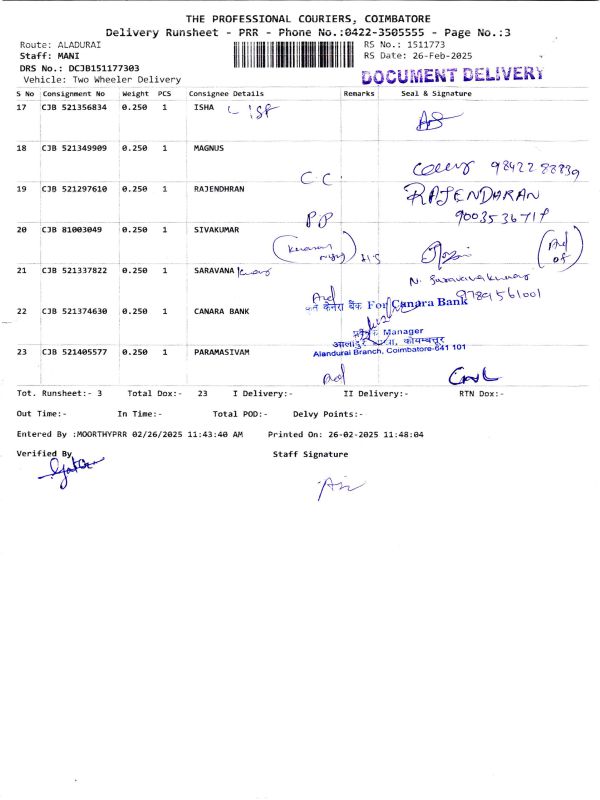 THE PROFESSIONAL COURIERS, COIMBATORE
Delivery Runsheet - PRR - Phone No.:0422-3505555 - Page No.:3
Route: ALADURAI RS No.: 1511773
Staff: MANI RS Date: 26-Feb-2025
DRS No.: DCJB151177303
Vehicle: Two Wheeler Delivery DOCUMENT DELIVERY
S No Consignment No Weight PCS Consignee Details Remarks Seal & Signature
17 CJB 521356834 0.250 1 ISHA
18 CJB 521349909 0.250 1 MAGNUS
C.C 98422 88839
19 CJB 521297610 0.250 1 RAJENDHRAN RAJENDHRAN
PP
20 CJB 81003049 0.250 1 SIVAKUMAR
21 CJB 521337822 0.250 1 SARAVANA N. Saravanakumar
9789561001
22 CJB 521374630 0.250 1 CANARA BANK केनेरा बैंक For Canara Bank
Manager
Alandurai Branch, Coimbatore-641 101
23 CJB 521405577 0.250 1 PARAMASIVAM
Tot. Runsheet:- 3 Total Dox:- 23 I Delivery:- II Delivery:- RTN Dox:-
Out Time:- In Time:- Total POD:- Delvy Points:-
Entered By :MOORTHYPRR 02/26/2025 11:43:40 AM Printed On: 26-02-2025 11:48:04
Verified By Staff Signature